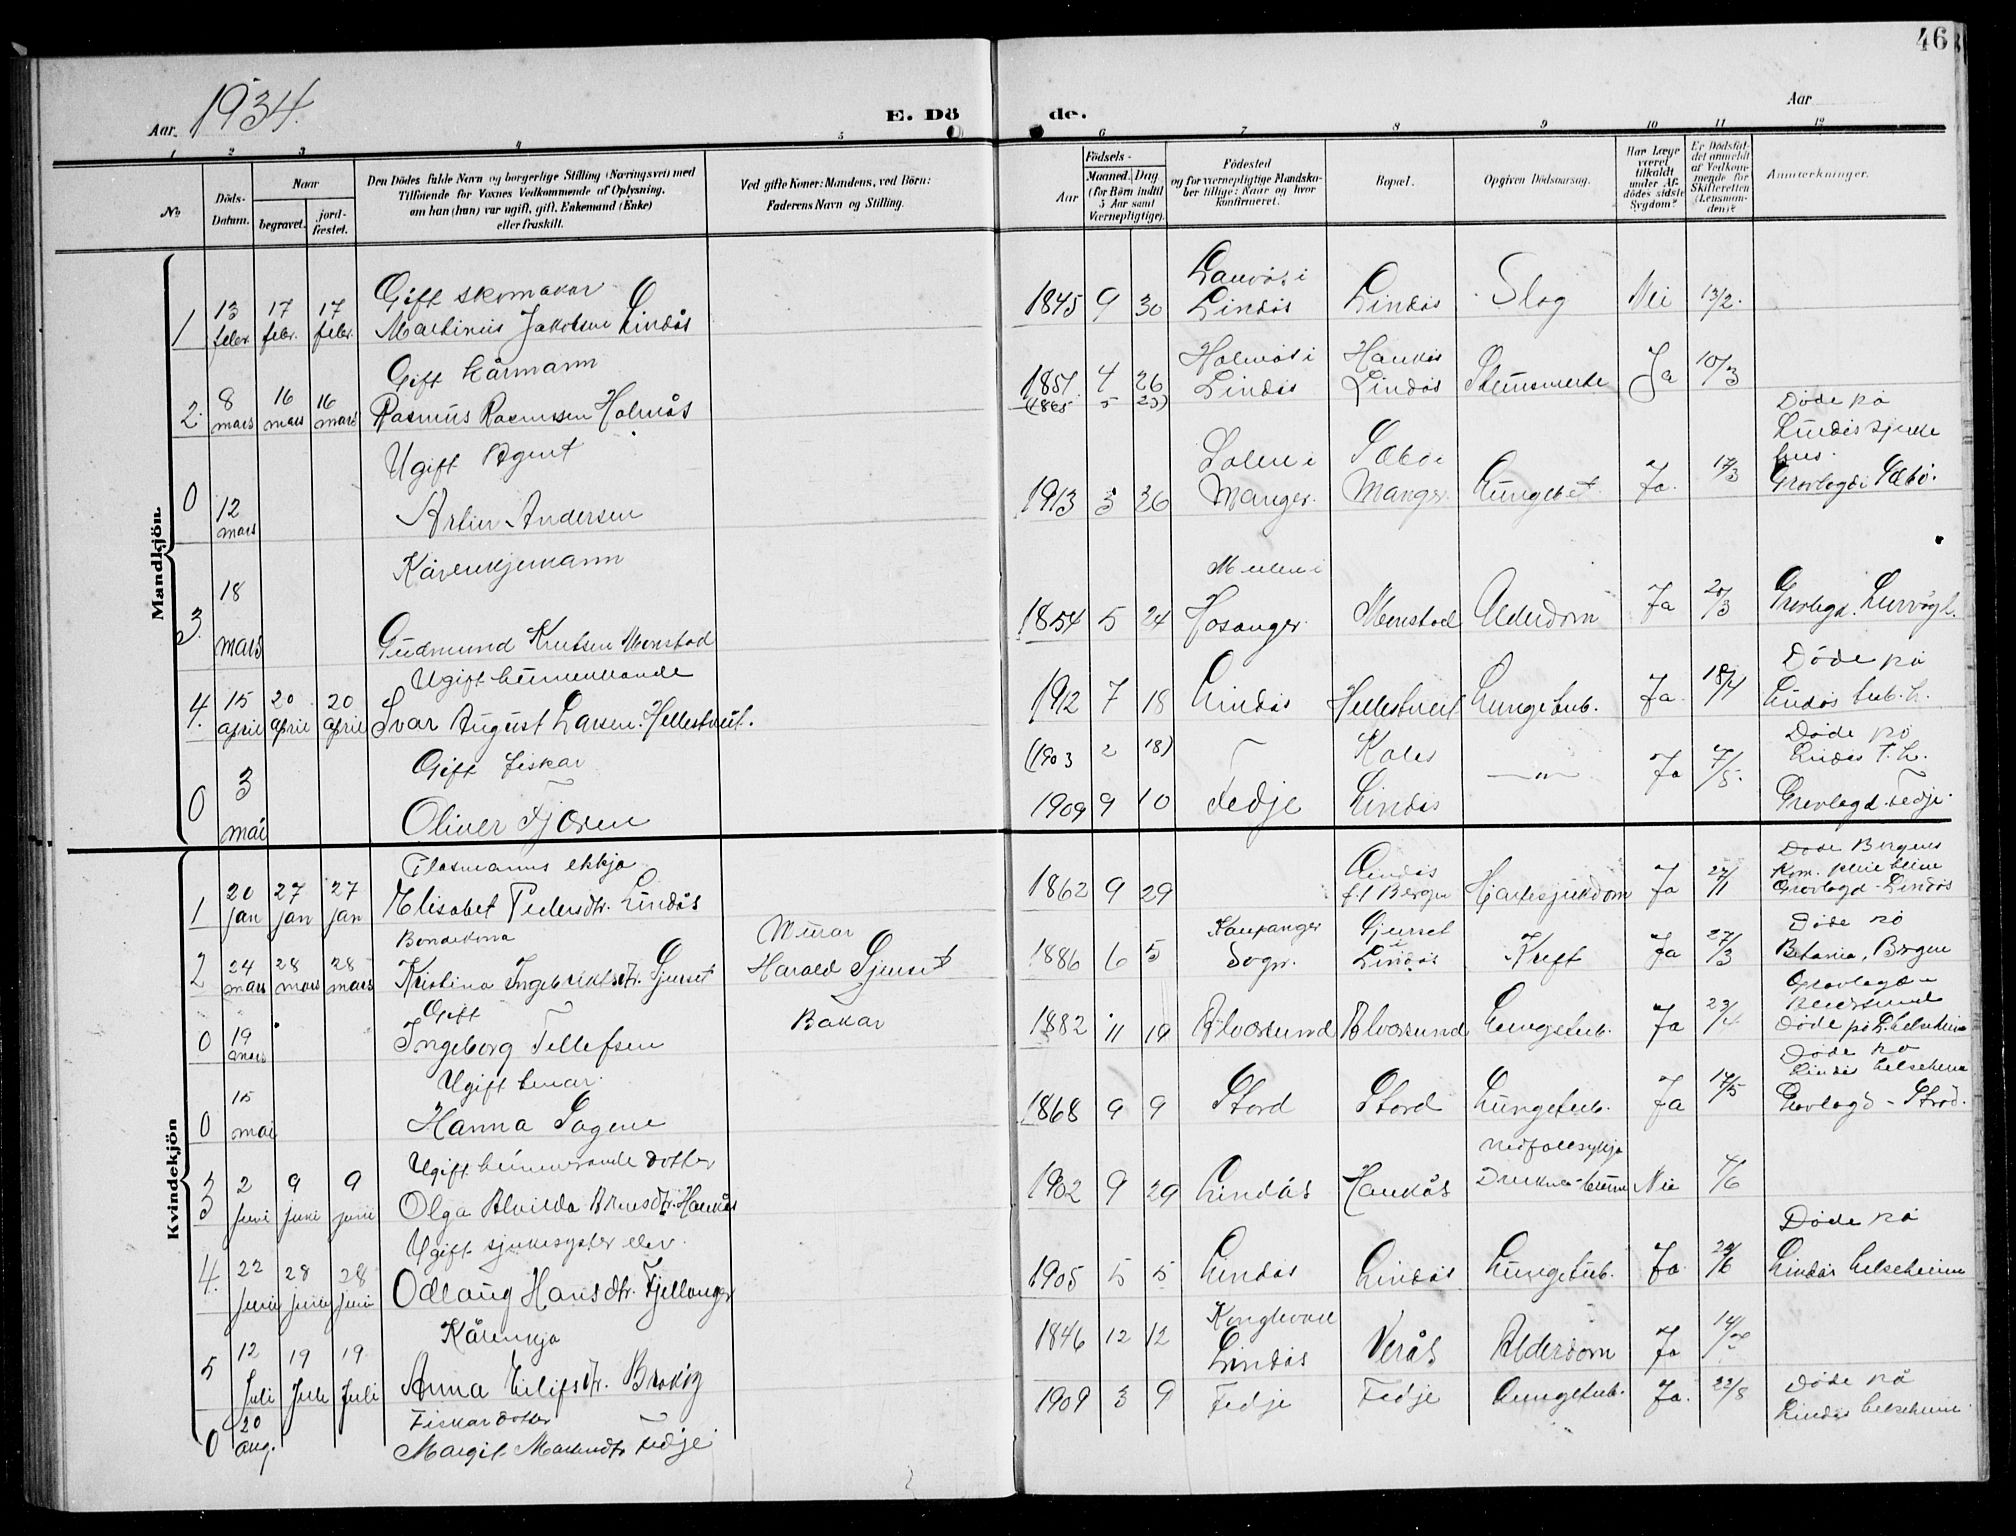 46
Aar 1934.
E. Dö de.
Aar
1 2 3 4 5 6 7 8 9 10 11 12
No.
Döds-Datum.
Naar
begravet.
jord-fæstet.
Den Dödes fulde Navn og borgerlige Stilling (Næringsvei) med
Tilföiende for Voxnes Vedkommende af Oplysning,
om han (hun) var ugift, gift, Enkemand (Enke)
eller fraskilt.
Ved gifte Koner: Mandens, ved Börn:
Faderens Navn og Stilling.
Födsels-
Aar
Maaned. Dag
(for Börn indtil
5 Aar samt
Værnepligtige).
Födested
og for værnepligtige Mandskaber tillige: Naar og hvor konfirmeret.
Bopæl.
Opgiven Dödsaarsag.
Har Læge været tilkaldt under Afdödes sidste Sygdom?
Er Dödsfaldet anmeldt af Vedkommende for Skifteretten (Lensmanden)?
Anmærkninger.
Mandkjön.
Gift skomakar
1 13 febr. 17 febr. 17 febr. Martinus Jakobsen Lindås 1845 9 30 Lindås Lindås Slag Nei 13/2.
Gift kårmann
2. 8 mars 16 mars 16 mars Rasmus Rasmussen Holmås 1851 4 26 Holmås i Lindås Haukås Lindås Ja 10/3
(1865 5 23)
Ugift Agent
0 12 mars Andersen 1913 5 26 Manger. Sæbö i Manger Ja. 17/3 Döde på Lindås sjukehus. Gravlagd i Sæbö.
Kårenkjemann
3. 18 mars Gudmund Knutsen Monstad 1854 5 24 Hosanger. Monstad Alderdom Ja 20/3 Gravlagd.
Ugift heimeverande
4. 15 april 20 april 20 april Ivar August Larsen Hellestveit. 1912 7 18 Lindås Hellestveit Lungetub. Ja. 18/4 Döde på Lindås tub. h.
Gift fiskar
0 3 mai Oliver Tjoren 1909 9 10 Fedje Lindås —"— Ja 7/5 Döde på Lindås T. h. Gravlagd Fedje.
(1903 2 18)
Kvindekjön
enkja
1 20 jan 27 jan 27 jan Elisabet Pedersdtr. Lindås 1862 9 29 Lindås f.t Bergen Hjartesjukdom Ja 22/1 Döde Bergens Kom. pleieheim Gravlagd - Lindås
Bondekona
2 24 mars 28 mars 28 mars Kristina Ingebriktsdtr. Gjerset Murar Harald Gjerset 1886 6 5 Kaupanger Sogn. Gjerset i Lindås Kreft Ja 27/3 Döde på Betania, Bergen
Gift
0 19 mars Ingeborg Tellefsen Bakar 1882 11 19 Alversund Alversund Lungetub. Ja 23/4 Gravlagd i Alversund Döde på L. helseheim
Ugift
0 15 mai Hanna Sagen 1868 9 9 Stord Stord Lungetub. Ja 17/5 Döde på Lindås helseheim Gravlagd - Stord.
Ugift heimeverande dotter
3 2 juni 9 juni 9 juni Olga Alvilda Haukås 1902 9 29 Lindås Haukås nedfallsykja Nei 4/6
Ugift sjukesyster elev.
4. 22 juni 28 juni 28 juni Odlaug Hansdtr. Fjellanger 1905 5 5 Lindås Lindås Lungetub. Ja Döde på Lindås helseheim
Kårenkja
5 12 Juli 19 Juli 19 Juli Anna Eilifsdtr. 1846 12 12 Lindås Verås Alderdom Ja
Fiskardotter
0 20 aug. Margit Fedje 1909 3 9 Fedje Fedje Lungetub. Ja. 22/8 Döde på Lindås helseheim